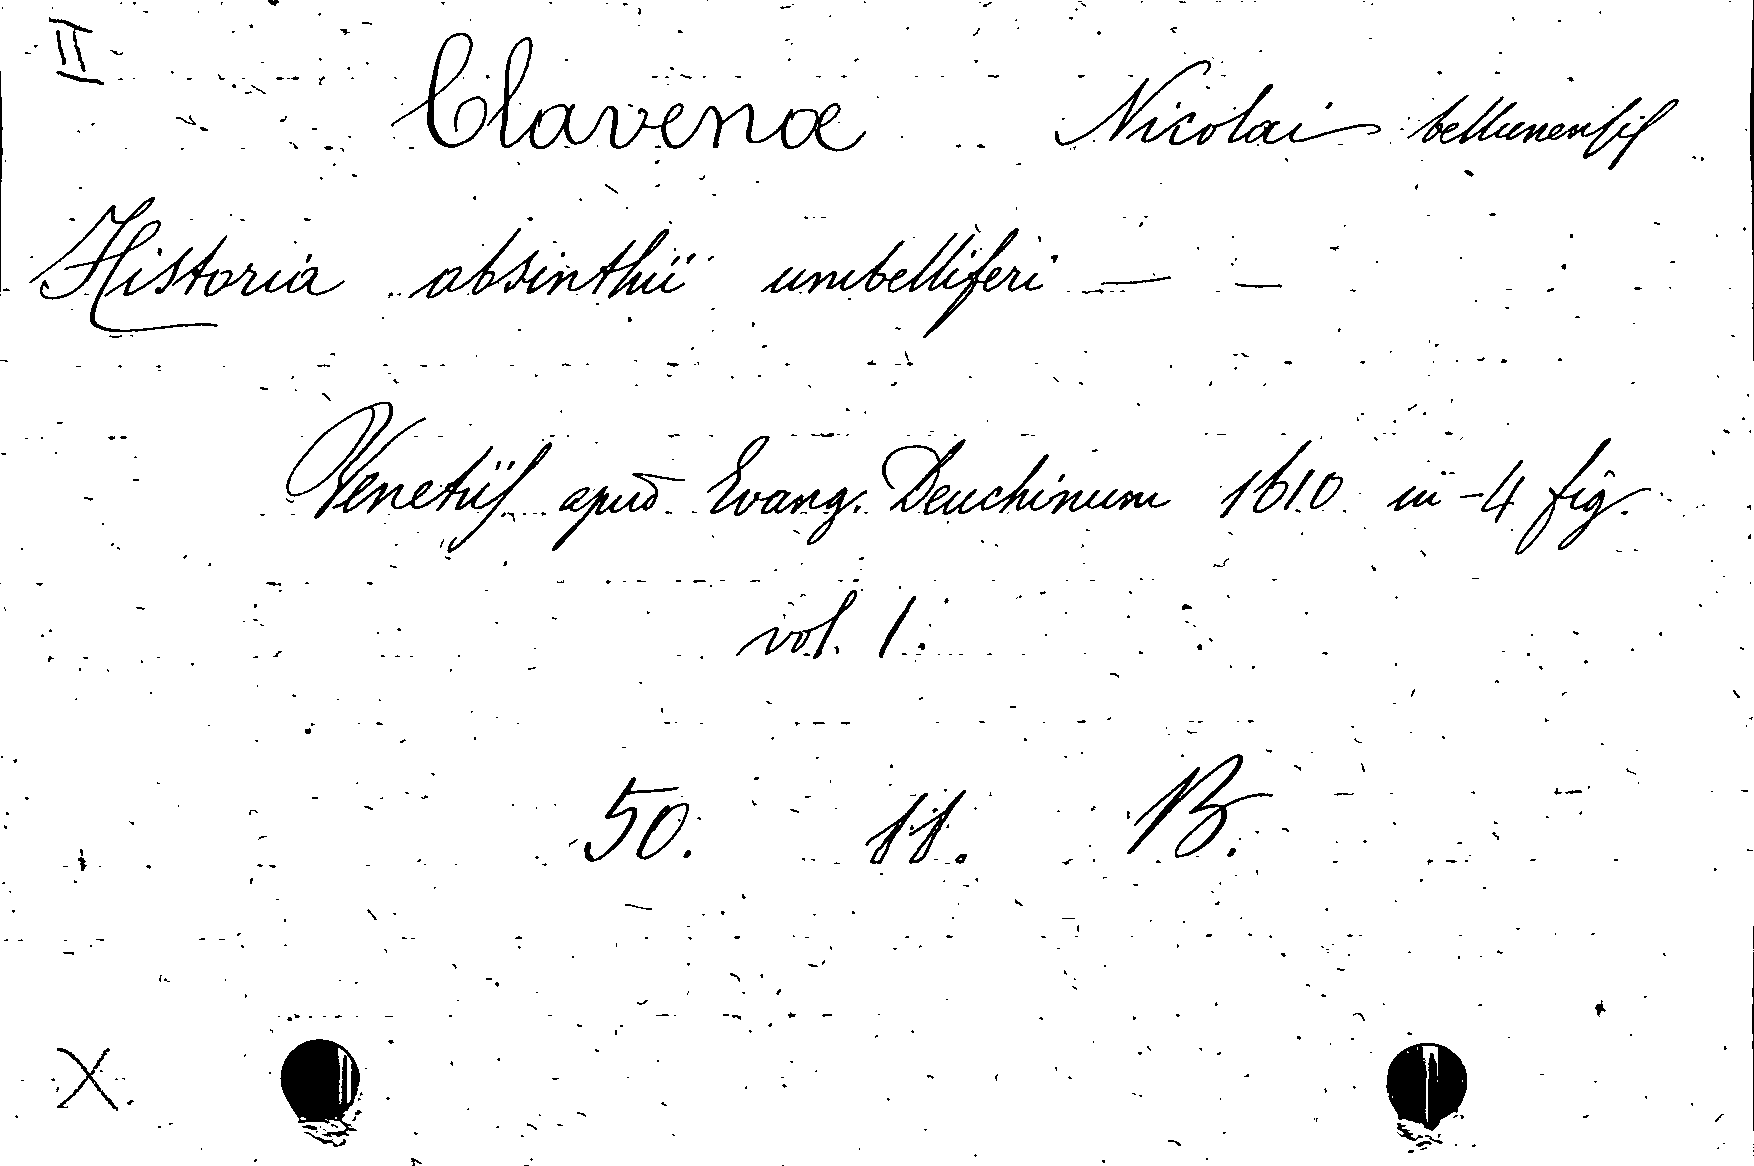 II
Clavenæ Nicolai bellunensis
Historia absinthii umbelliferi — —
Venetiis apud Evang. Deuchinum 1610 in-4 fig.
vol. 1.
50. 11. B.
X.